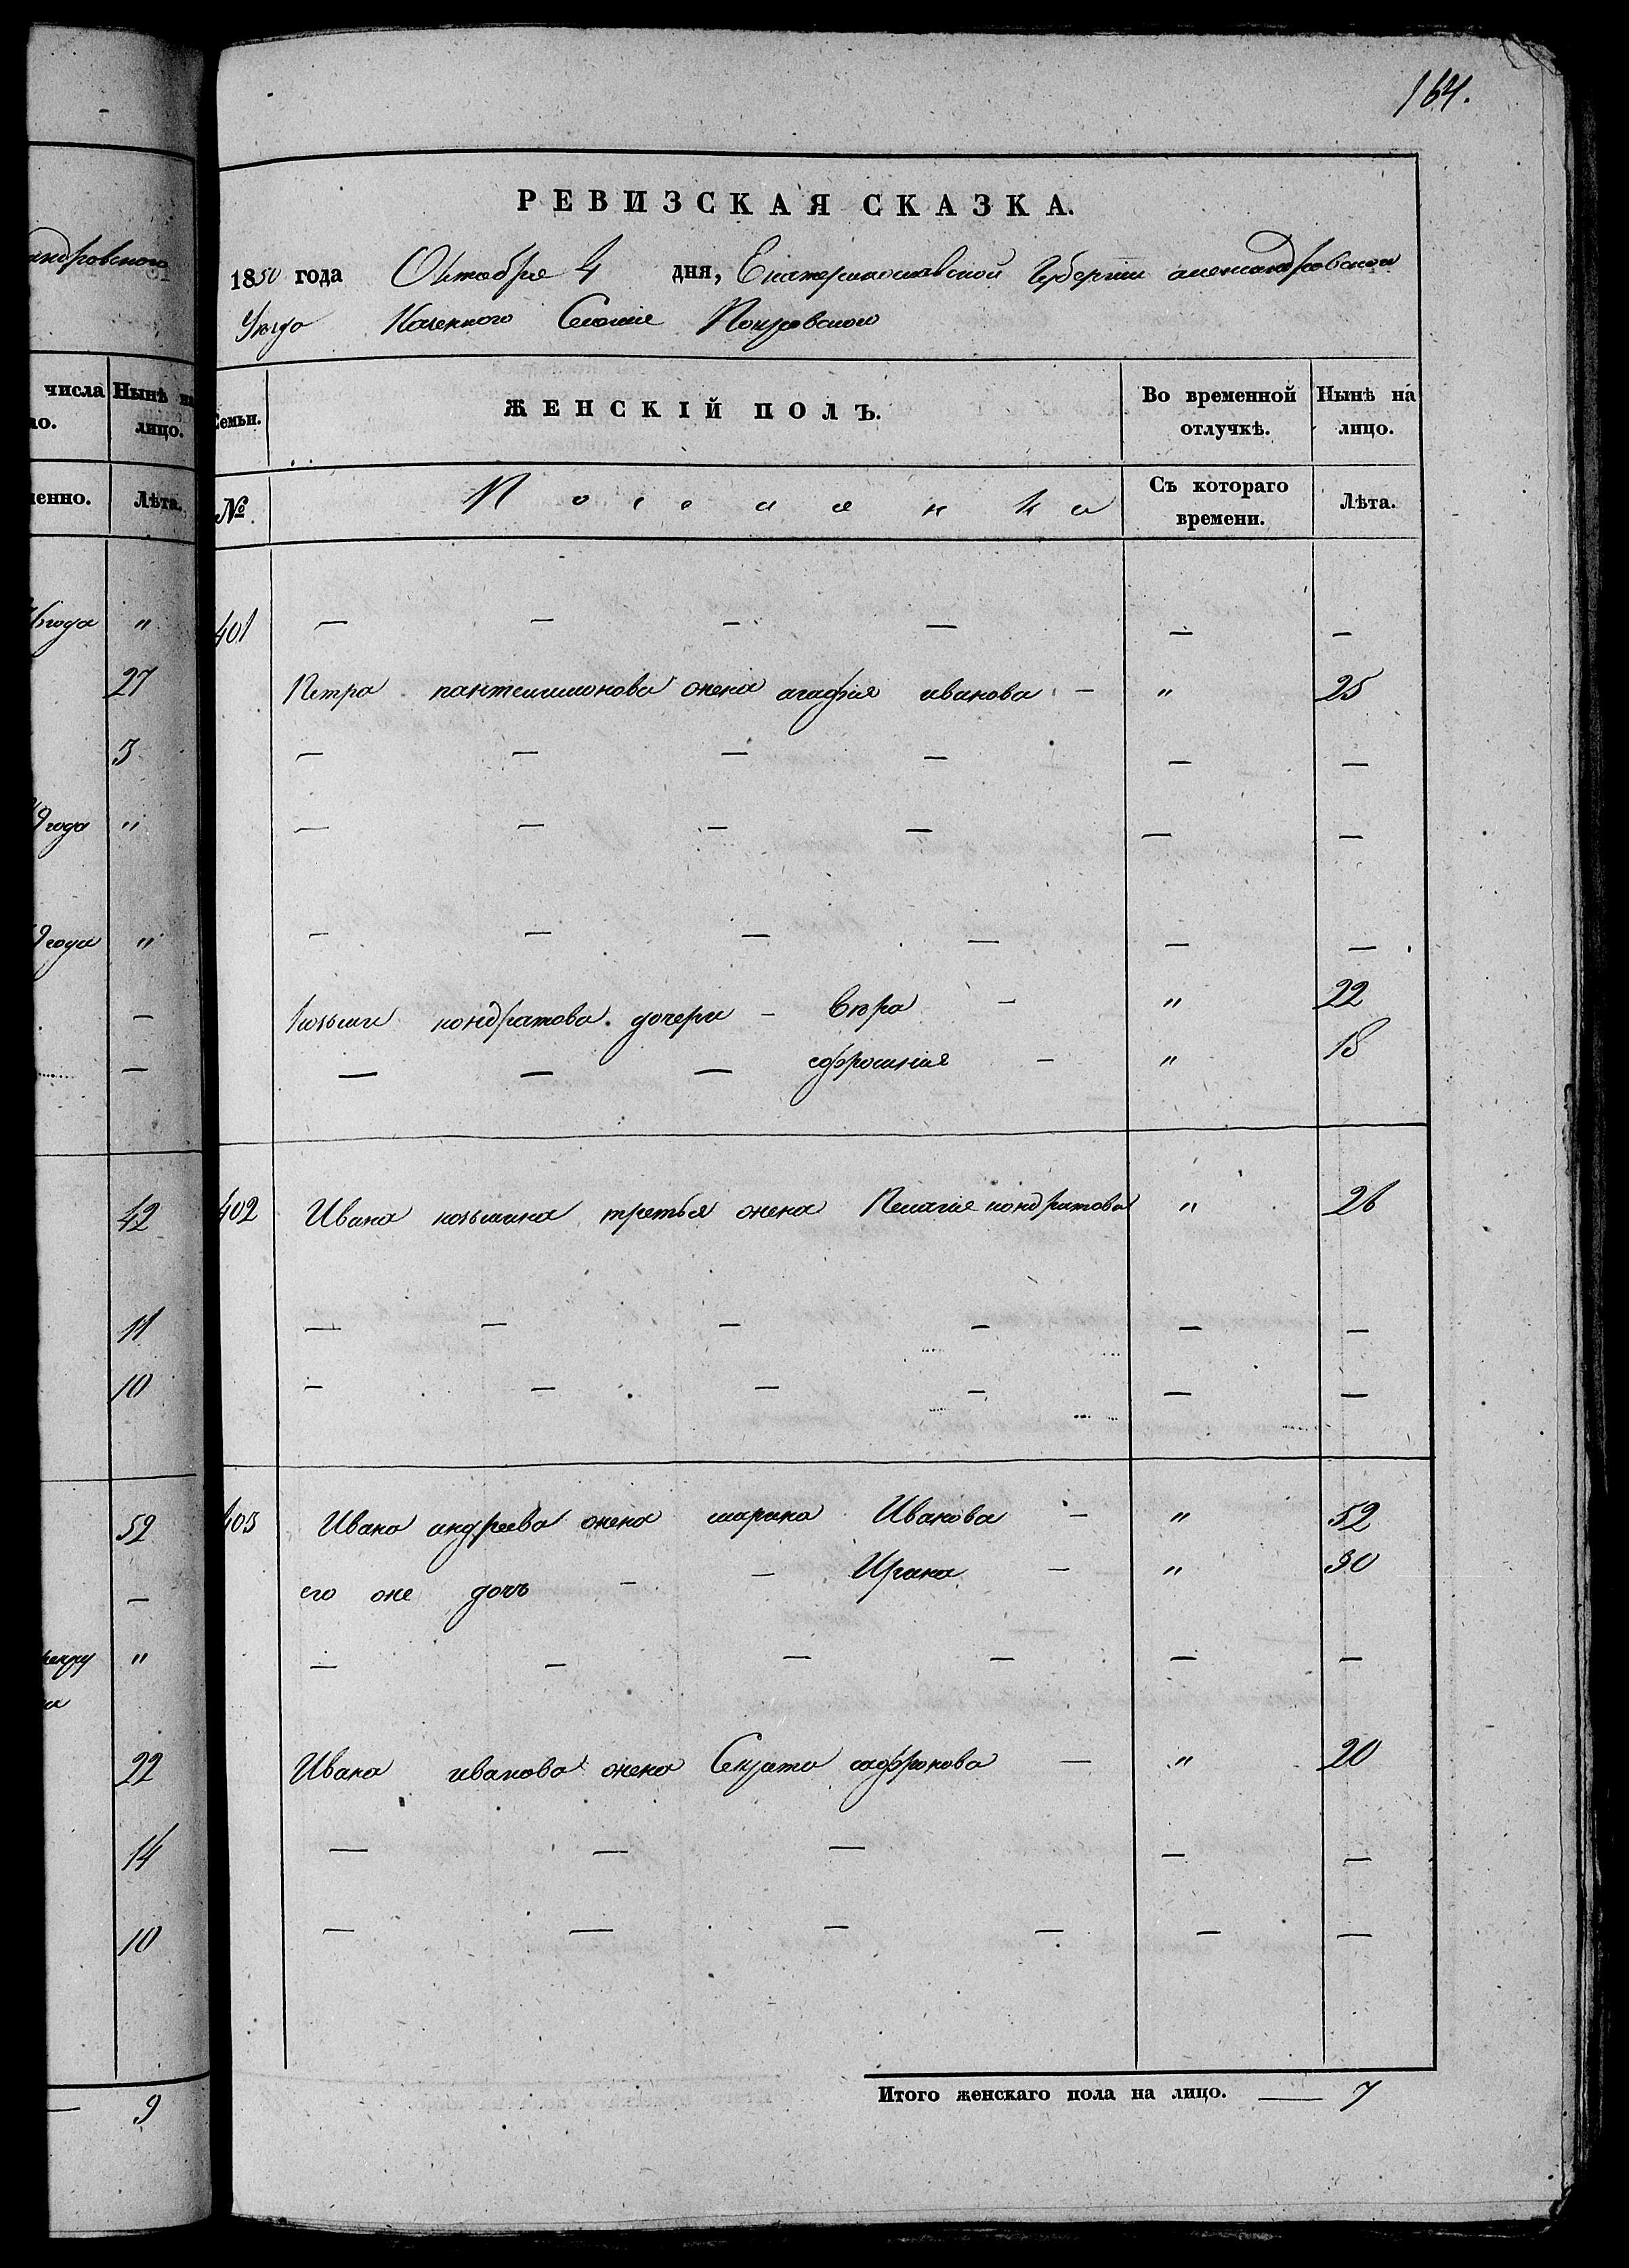 164.
РЕВИЗСКАЯ СКАЗКА.
1850 года Октября 4 дня, Екатеринославской Губернии александровского
Уезда Казенного Селение Покровского
Семьи. ЖЕНСКІЙ ПОЛЪ. Во временной отлучкѣ. Нынѣ на лицо.
№ Поселянка Съ котораго времени. Лѣта.
401 — — — — — —
Петра пантелимонова жена агафия иванова — " 25
— — — — — —
— — — — — —
— — — — — —
Козьми кондратова дочери — Вера — " 22
— — — ефросиния — " 18
402 Ивана козьмина третья жена Пелагия кондратова " 26
— — — — — —
— — — — — —
403 Ивана андреева жена марина Иванова — " 52
его же дочь — — Ирина — " 30
— — — — — —
Ивана иванова жена сафронова — " 20
— — — — —
— — — — — —
Итого женскаго пола на лицо. — 7
андровского
числа Нынѣ на
лицо.
Лѣта.
6 года "
27
3
9 года "
9 года "
—
—
42
11
10
52
—
"
22
14
10
— 9